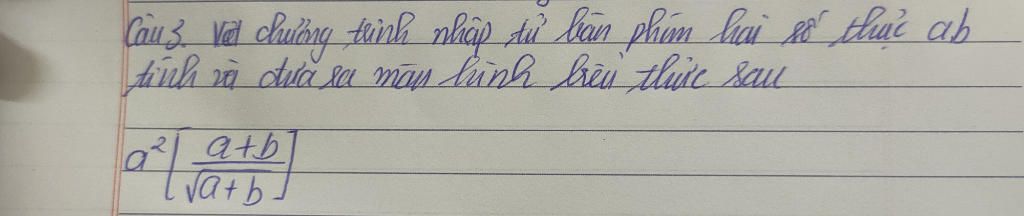 Câu 3. Viết chương trình nhập từ bàn phím hai số thực a b
tính và đưa ra màn hình biểu thức sau
a²[(a+b)/(√a+b)]